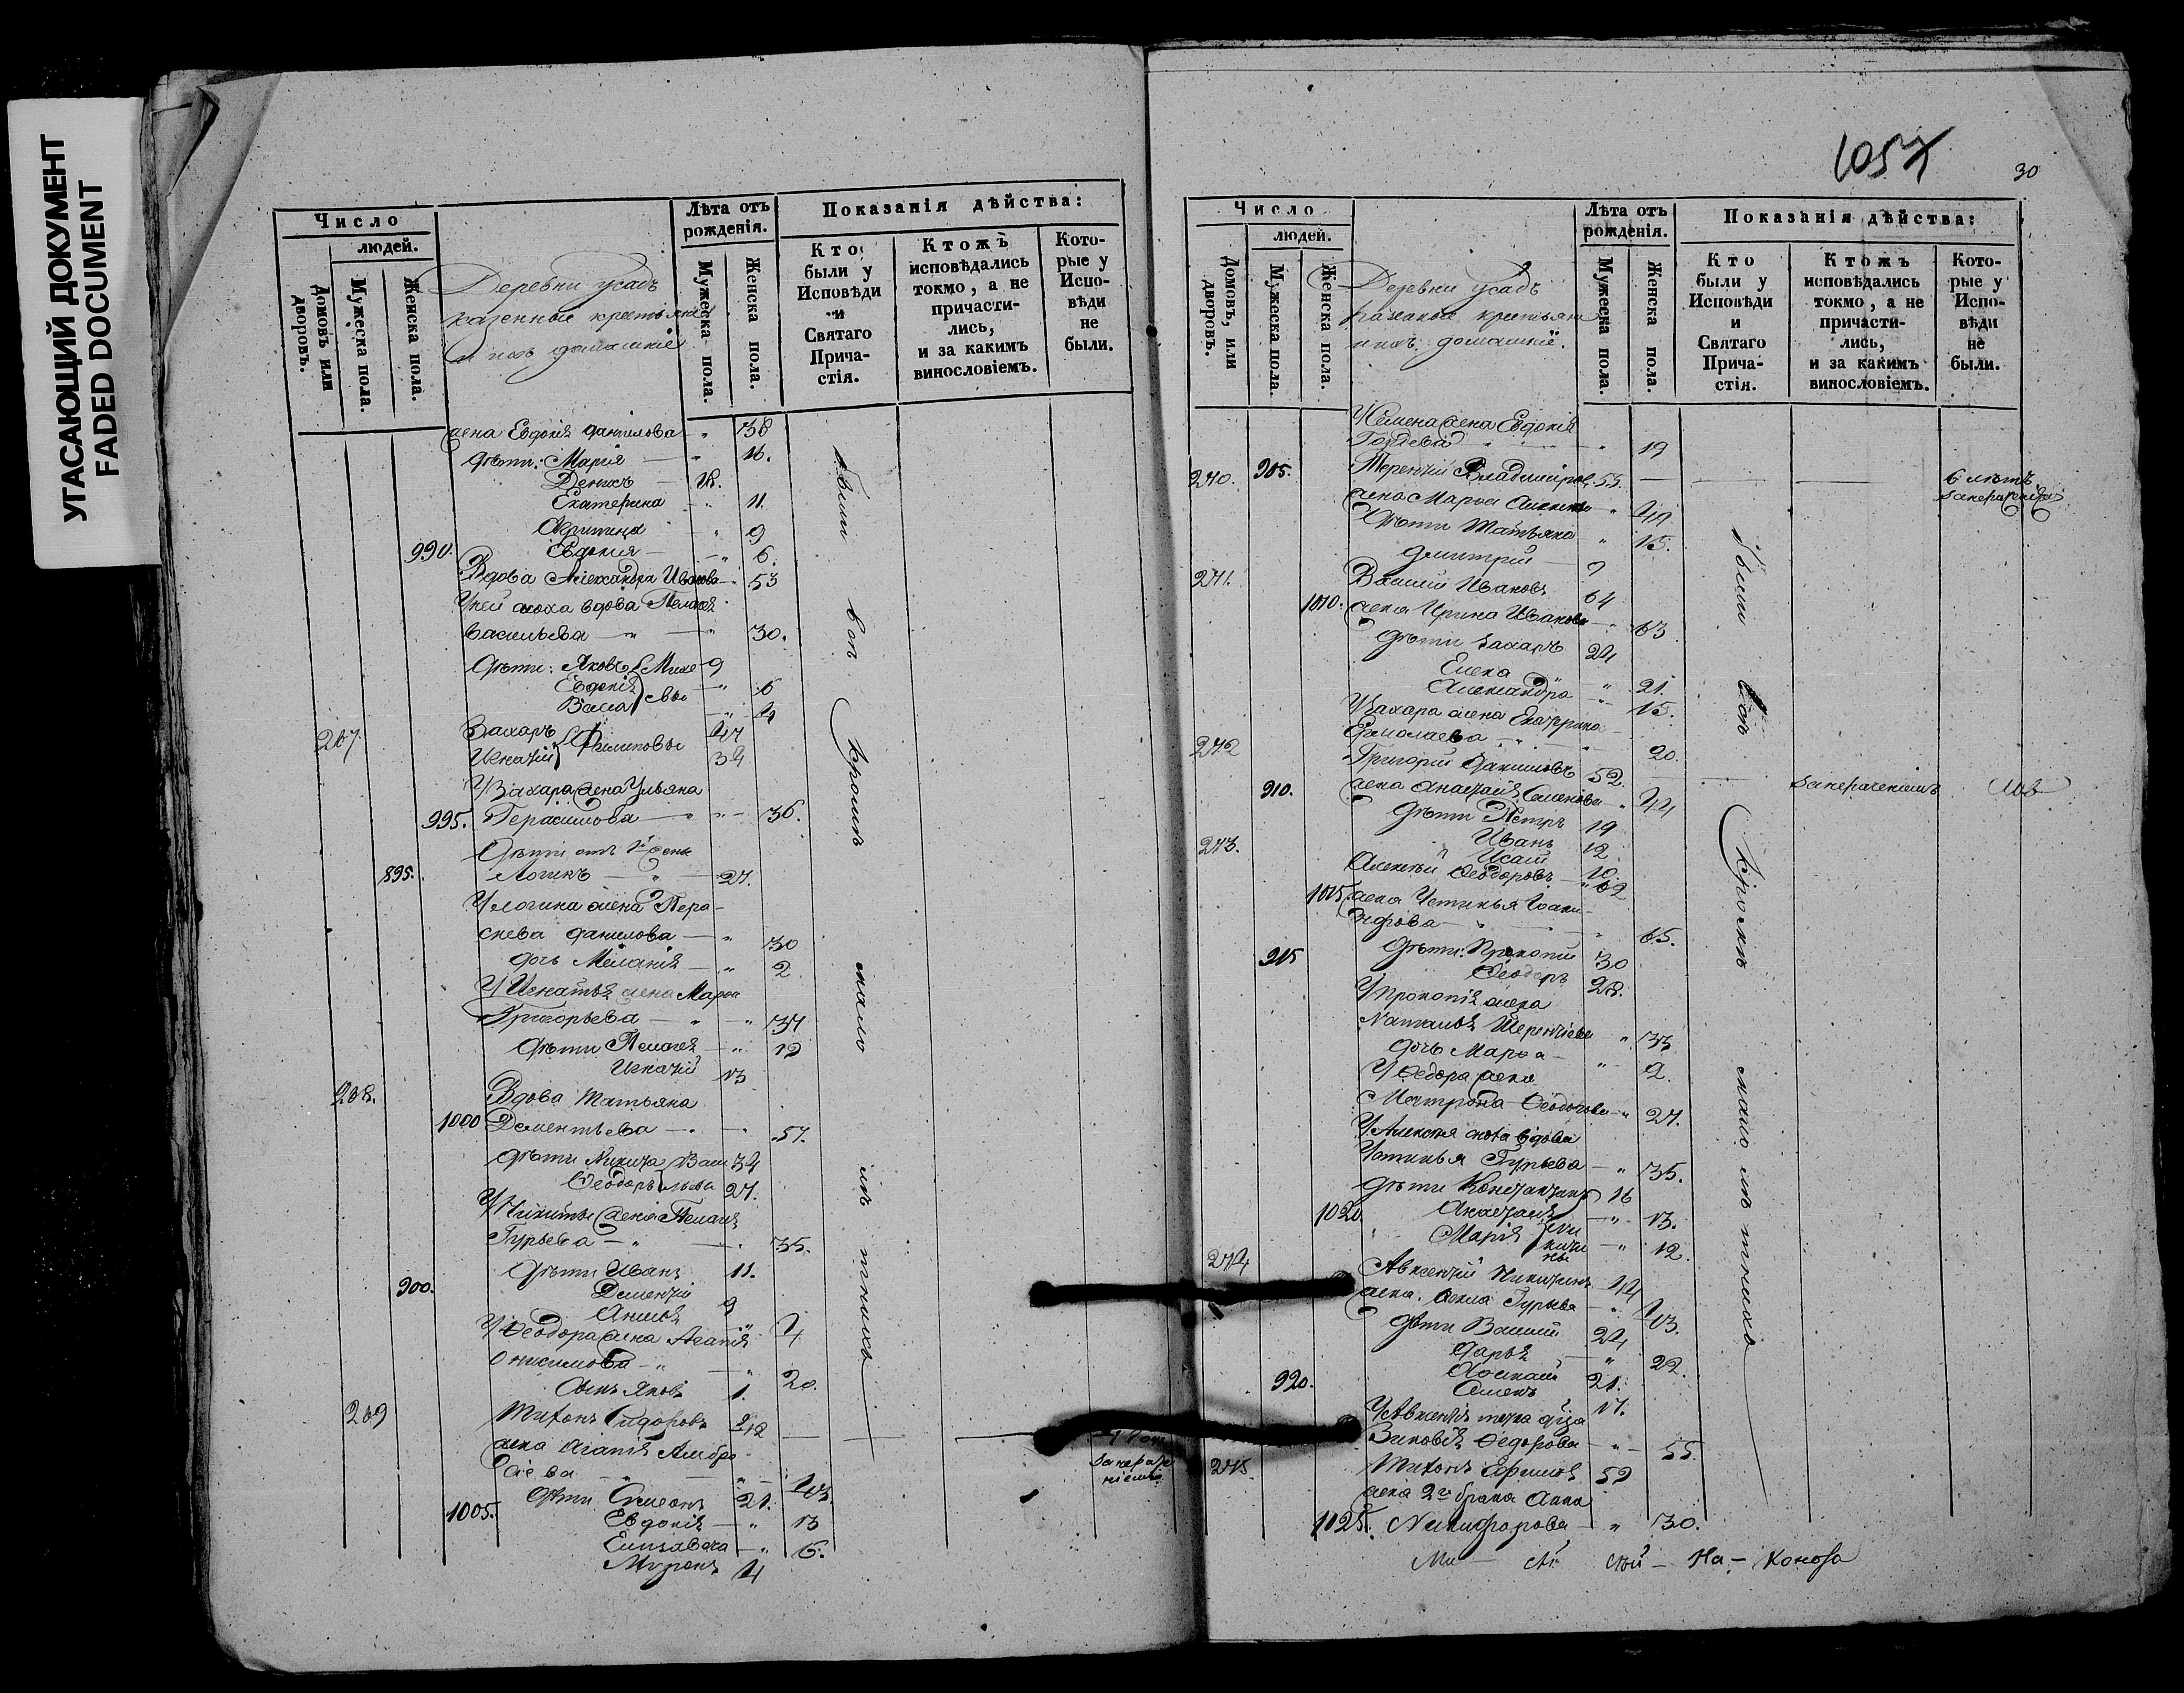 УГАСАЮЩИЙ ДОКУМЕНТ
FADED DOCUMENT
Число
людей.
Домовъ или дворовъ.
Мужеска пола.
Женска пола.
Деревни усадъ
казенные крестьяне
и ихъ домашніе
Лѣта отъ рожденія.
Мужеска пола.
Женска пола.
Показанія дѣйства:
Кто были у Исповѣди и Святаго Причастія.
Ктожъ исповѣдались токмо, а не причастились, и за какимъ винословіемъ.
Которые у Исповѣди не были.
жена Евдокія Данилова " 38
дѣти: Марія — " 16.
Денисъ — 18.
Екатерина " 11.
" 9
990. Евдокия — " 6.
Вдова Александра Иванова " 53
У ней сноха вдова Пелагея
Васильева — " — " 30.
Дѣти: Яковъ 9
Евдокія " 6
Васса " 4
267. Захаръ 47
Игнатій Филиповы 34
У Захара жена Ульяна
995. Герасимова — " " — 36.
Дѣти отъ 1й жены
895. Логинъ — " — 27.
У Логина жена Пера-
скева Данилова — " 30
дочь Меланія — " 2
У Игнатья жена Марѳа
Григорьева — " — " 37
дѣти Пелагея — " 12
Игнатій 13
268. Вдова Татьяна
1000 Дементьева — " — 57.
дѣти Никита 34
Ѳеодоръ 27.
У Никиты жена Пелагея
Гурьева — " — " 35.
дѣти Иванъ 11.
900. Дементій 9
4
У Ѳеодора жена Агапія
Онисимова — " " 20.
сынъ Яковъ 1.
269 Тихонъ Сидоровъ 42
жена Агапія Амбро-
сіева — " " — 43.
дѣти Симеонъ 21.
1005. Евдокія — " 13
Елизавета — " 6.
Миронъ 4
Были
вси
кромѣ
малолѣтнихъ
1057
30
Число
людей.
Домовъ, или дворовъ.
Мужеска пола.
Женска пола.
Деревни усадъ
казенные крестьяне
и ихъ домашніе.
Лѣта отъ рожденія.
Мужеска пола.
Женска пола.
Показанія дѣйства:
Кто были у Исповѣди и Святаго Причастія.
Ктожъ исповѣдались токмо, а не причастились, и за какимъ винословіемъ.
Которые у Исповѣди не были.
жена Евдокія
" 19
270. 905. Терентій Владиміровъ 55. — — — 6 лѣтъ
жена Марѳа "
дѣти Татьяна " 15.
Дмитрій 7
271. Василій Ивановъ 64
1010. жена Ирина Иванова — " 63
дѣти Захаръ 24
Елена " 21.
Александра " 15.
У Захара жена Екатерина
Ермолаева — " " 20.
272 Григорій Даниловъ 52.
910. жена Анастасія Семенова " 44
дѣти Петръ 19
Иванъ 12
Исаія 10.
273. Алексѣй Ѳеодоровъ 62
1015. жена Устинья Іоаки-
" 65.
915 дѣти: Прокопій 30
Ѳеодоръ 28.
У Прокопія жена
Наталья Терентіева " 33
дочь Марѳа " 2.
У Ѳедора жена
Матрона Ѳеодотова " 27.
У Алексѣя сноха вдова
Устинья Гурьева — " 35.
дѣти Константинъ 16
1020 Анастасія " 13.
Марія " 12.
274 Авксентій Никитинъ 44
жена Гурьева " 43.
дѣти Василій 24
Дарья " 22.
920. 21.
Семенъ 17.
У Авксентія тетка дѣвица
Зиновія Ѳедорова — " — 55.
275. Тихонъ Ефимовъ 52
жена 2го брака Анна
1025. Никифорова — " 30.
Были
вси
кромѣ
малолѣтнихъ